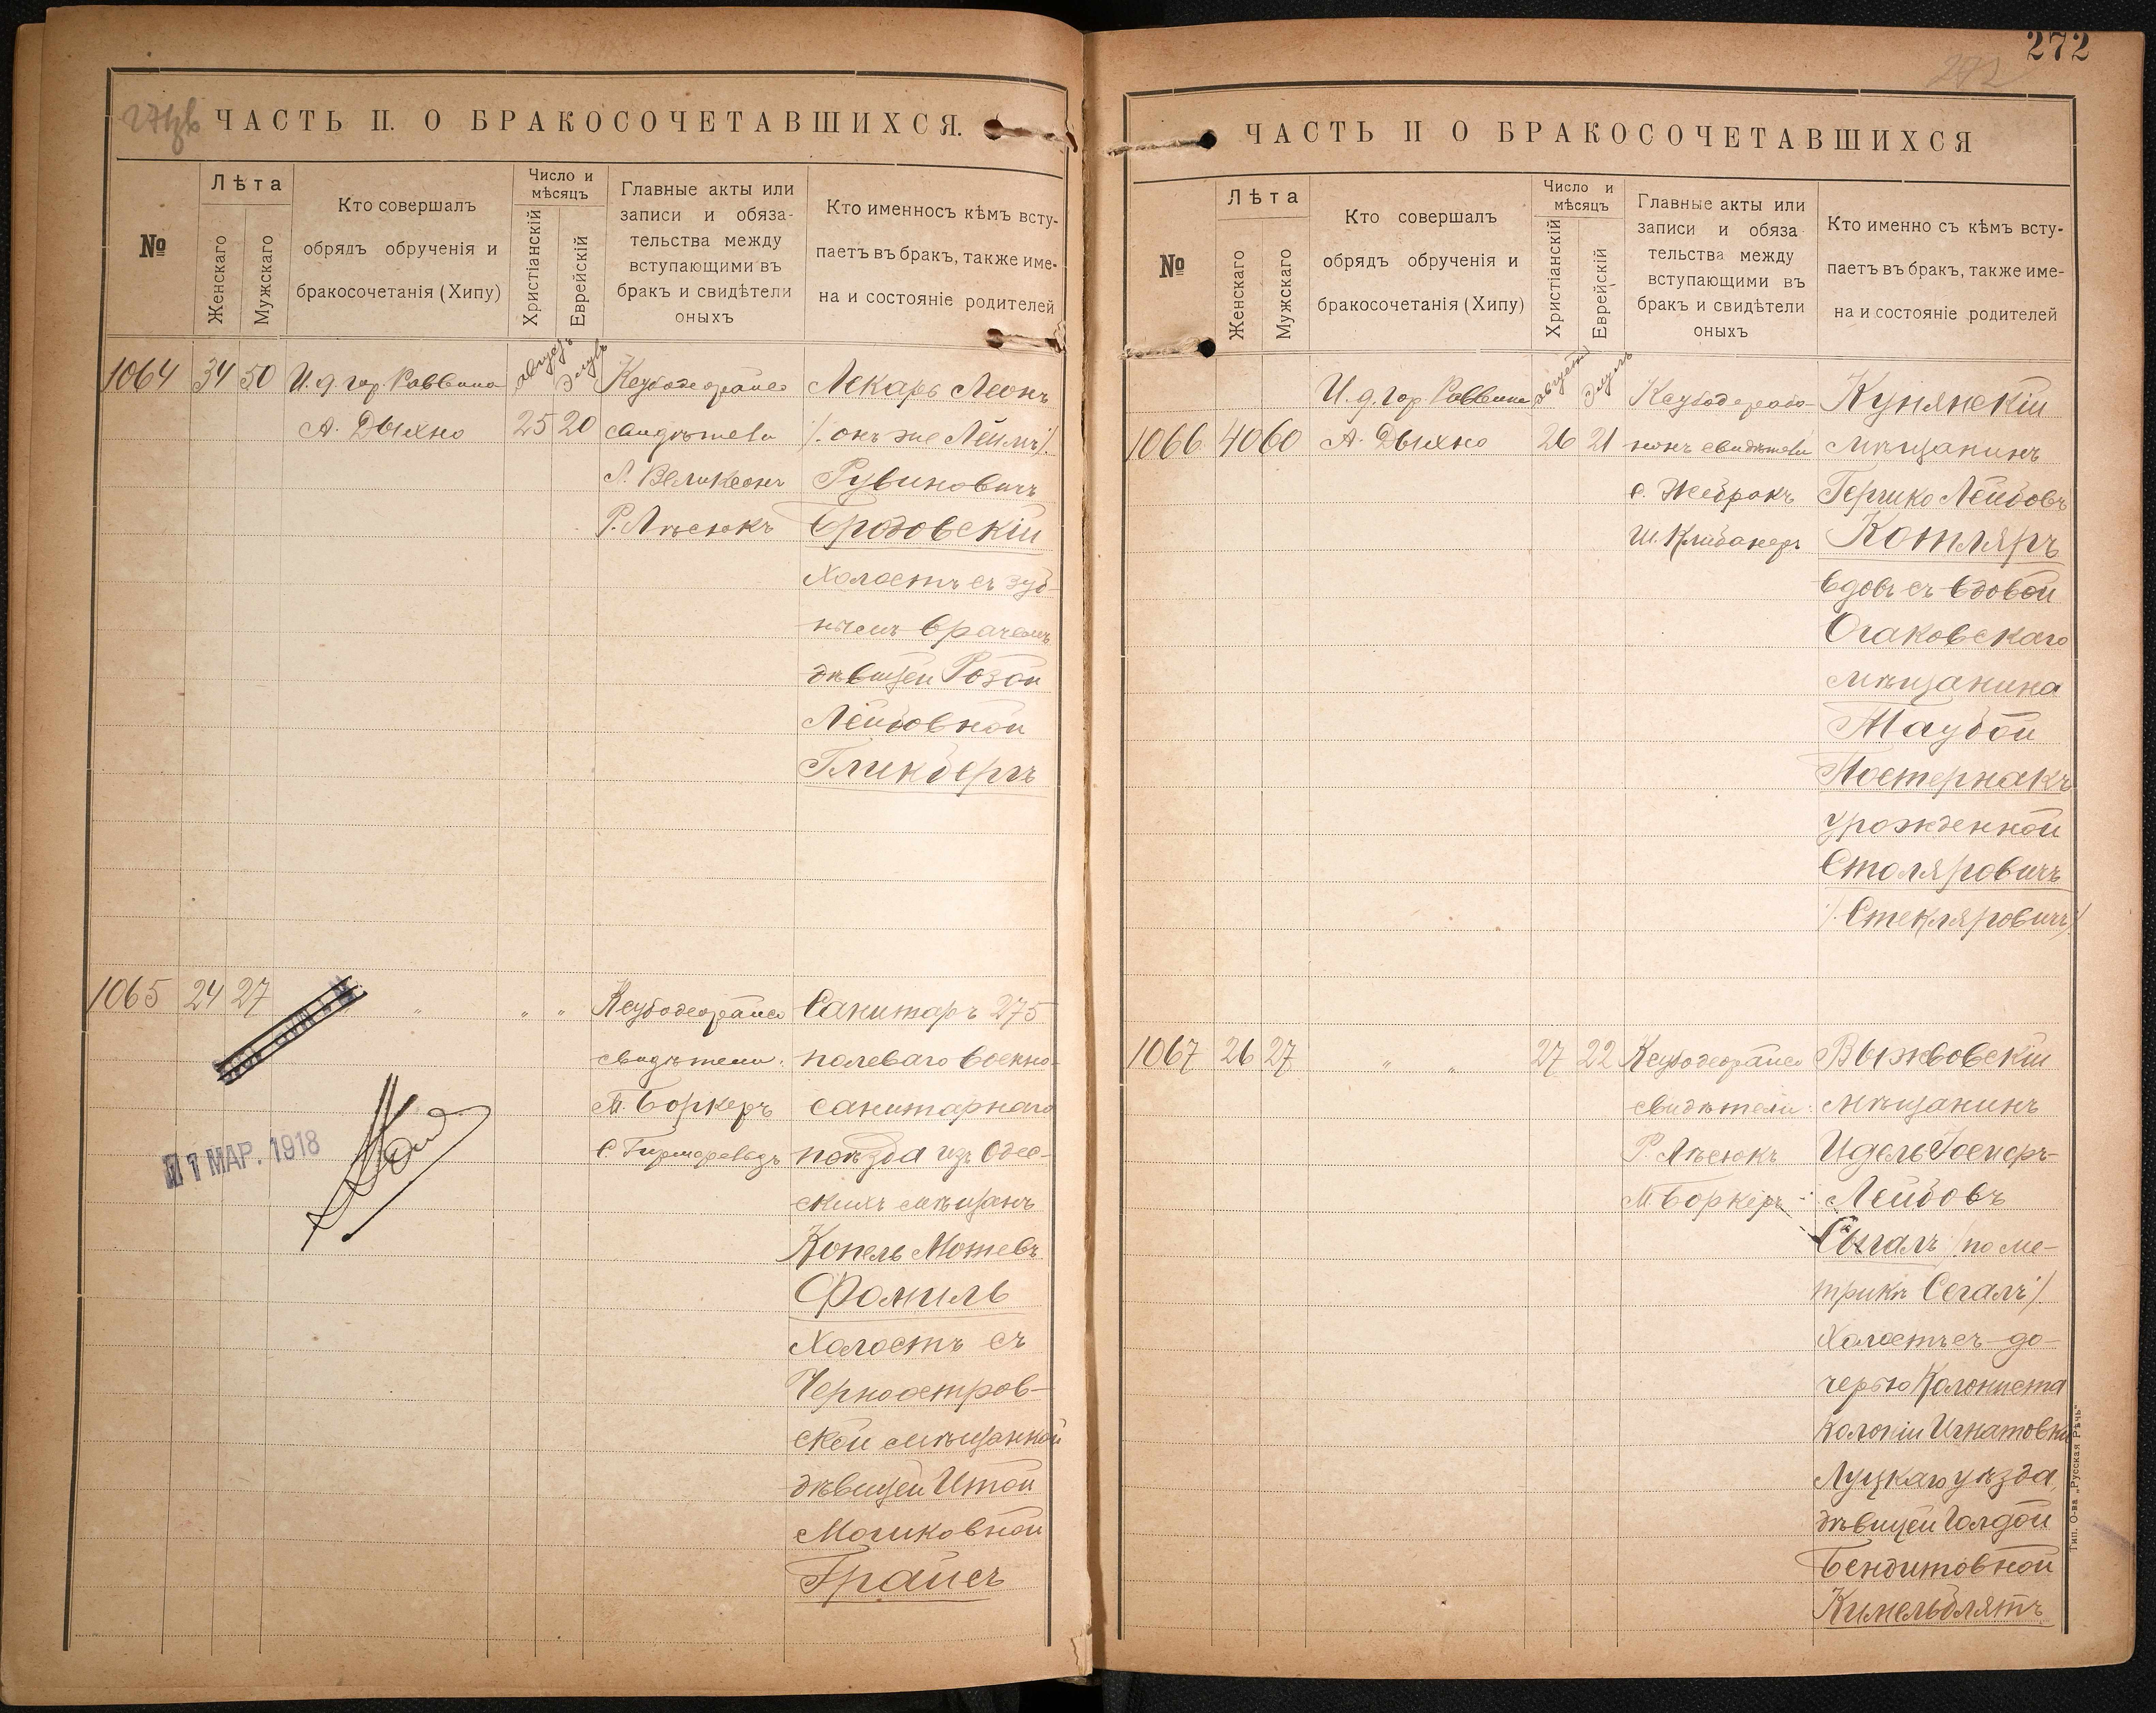 ЧАСТЬ II. О БРАКОСОЧЕТАВШИХСЯ.
№
Лѣта
Женскаго
Мужскаго
Кто совершалъ
обрядъ обрученія и
бракосочетанія (Хипу)
Число и
мѣсяцъ
Христіанскій
Еврейскій
Главные акты или
записи и обяза-
тельства между
вступающими въ
бракъ и свидѣтели
оныхъ
Кто именносъ кѣмъ всту-
паетъ въ бракъ, также име-
на и состояніе родителей
1064 34 50 И. д. гор. Раввина
А. Дыхно
Августъ
Элулъ
25 20
Р. Лѣсюкъ
Лекарь Леонъ
/. онъ же Леймъ ./
Рувиновичъ
Бродовскій
Холостъ съ зуб-
нымъ врачемъ
дѣвицей Розой
Лейбовной
Гликбергъ
1065 24 27 " " "
свидѣтели:
М. Боркеръ
Санитаръ 275
полеваго военно-
санитарнаго
поѣзда изъ Одес-
скихъ мѣщанъ
Копель Мошевъ
Фамиль
Холостъ съ
Черноостров-
ской мѣщанкой
дѣвицей Итой
Мошковной
Грайсъ
11 МАР. 1918
272
272
ЧАСТЬ II О БРАКОСОЧЕТАВШИХСЯ
№
Лѣта
Женскаго
Мужскаго
Кто совершалъ
обрядъ обрученія и
бракосочетанія (Хипу)
Число и
мѣсяцъ
Христіанскій
Еврейскій
Главные акты или
записи и обяза
тельства между
вступающими въ
бракъ и свидѣтели
оныхъ
Кто именно съ кѣмъ всту-
паетъ въ бракъ, также име-
на и состояніе родителей
И. д. гор. Раввина
1066 40 60 А. Дыхно
Августъ
Элулъ
26 21
свидѣтели
С. Жебракъ
Ш. Клибанеръ
Кунянскій
мѣщанинъ
Гершко Лейбовъ
Котляръ
вдовъ съ вдовой
Очаковскаго
мѣщанина
Таубой
Постернакъ
урожденной
Столяровичъ
/. Стекляровичъ ./
1067 26 27 " " 27 22
свидѣтели:
Р. Лѣсюкъ
М. Боркеръ
Выжвовскій
мѣщанинъ
Идель Іосифъ-
Лейбовъ
Сыгалъ /по ме-
трикѣ Сегалъ/
Холостъ съ до-
черью Колониста
колоніи Игнатовки
Луцкаго уѣзда
дѣвицей Голдой
Бендитовной
Кимельблятъ
Тип. О-ва „Русская Рѣчь“